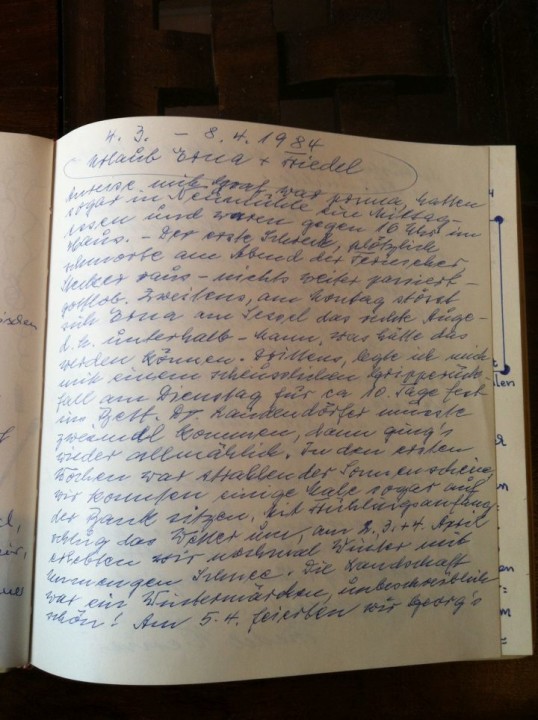 4. 3. – 8. 4. 1984
Urlaub Erna + Friedel
Anreise mit war prima, hatten
sogar in Neumühle ein Mittag-
essen und waren gegen 16 Uhr im
Haus. – Der erste Schreck, plötzlich
schmorte am Abend der Fernseher,
Stecker raus – nichts weiter passiert –
gottlob. Zweitens, am Montag stösst
sich Erna am Sessel das rechte Auge –
d. h. unterhalb – Mann, was hätte das
werden können. Drittens, legte ich mich
mit einem scheusslichen Gripperück-
fall am Dienstag für ca 10 Tage fest
ins Bett. Dr. musste
zweimal kommen, dann ging's
wieder allmählich. In den ersten
Wochen war strahlender Sonnenschein,
wir konnten einige Male sogar auf
der Bank sitzen, mit Frühlingsanfang
schlug das Wetter um, am 2. 3. + 4. April
erlebten wir nochmal Winter mit
Unmengen Schnee. Die Landschaft
war ein Wintermärchen, unbeschreiblich
schön! Am 5. 4. feierten wir Georg's